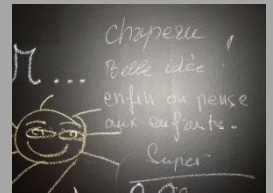 chapeau !
M...
Belle idée !
enfin on pense
aux enfants.
Super